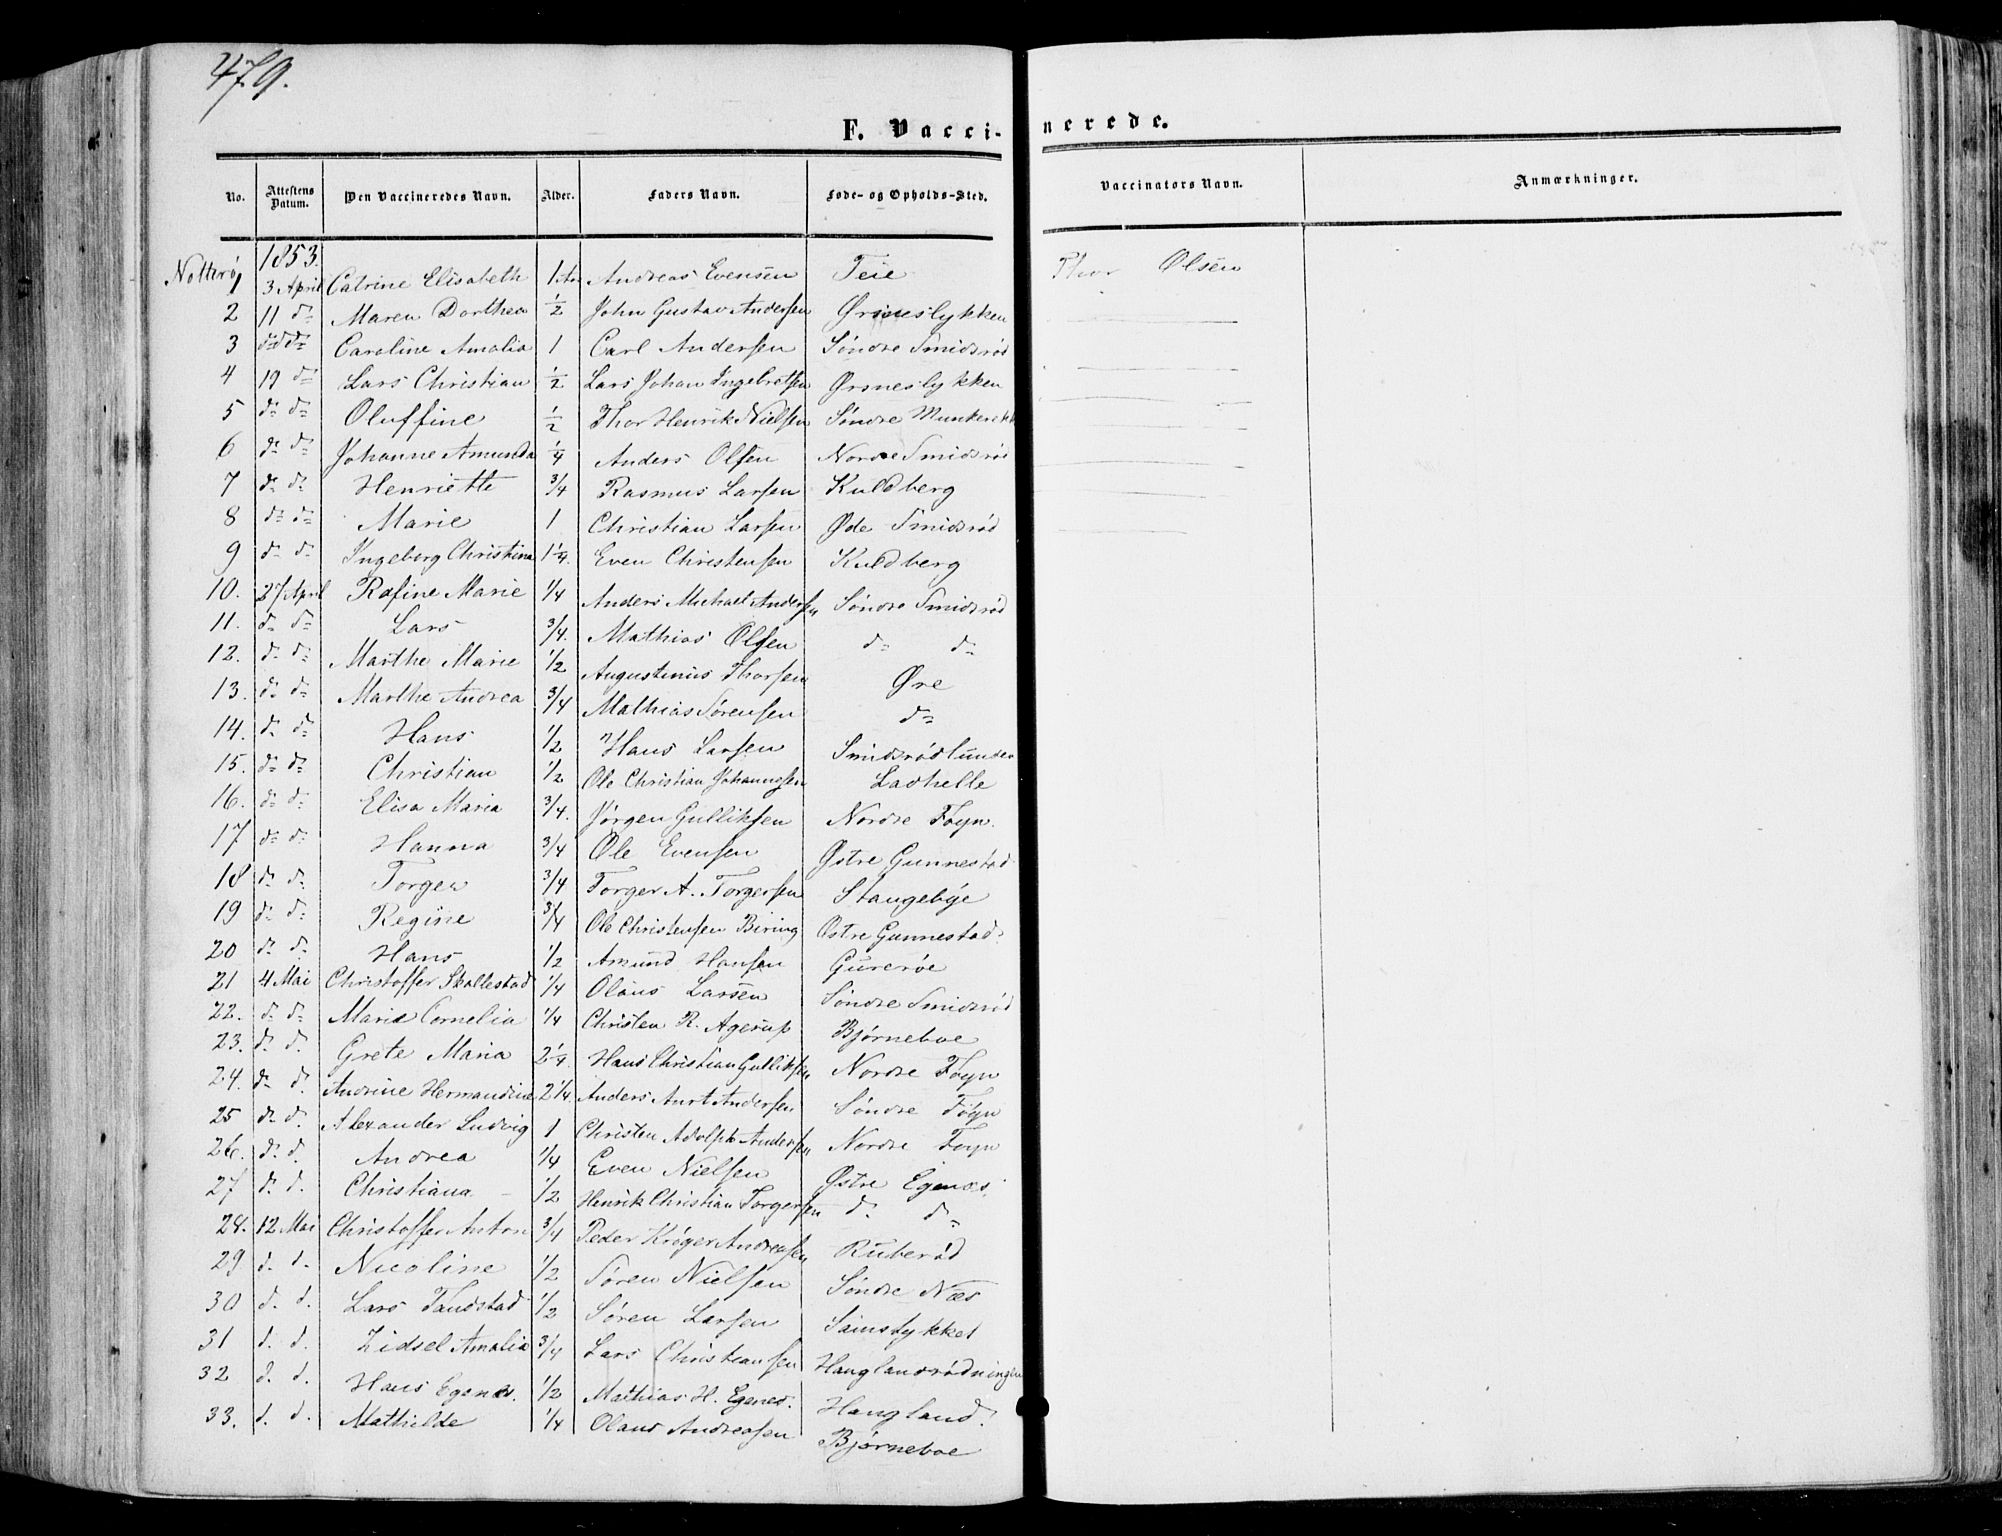 479.
F. Vaccinerede.
No. Attestens Datum. Den Vaccineredes Navn. Alder. Faders Navn. Føde- og Opholds-Sted. Vaccinators Navn. Anmærkninger.
Nøtterø 1853.
1 3 April Catrine Elisabeth 1 Andreas Evensen Teie Thor Olsen
2 11 do Maren Dorthea 1/2 John Gustav Andersen Ørsneslykken
3 do do Caroline Amalia 1 Carl Andersen Søndre Smidsrød
4 19 do Lars Christian 1/2 Lars Johan Ingebretsen Ørsneslykken
5 do do Oluffine 1/2 Thor Henrik Nielsen Søndre
6 do do Johanne Amunda 1/4 Anders Olsen Nordre Smidsrød
7 do do Henriette 3/4 Rasmus Larsen Kuldberg
8 do do Marie 1 Christian Larsen Øde Smidsrød
9 do do Ingeborg Christina 1 1/4. Even Christensen Kuldberg
10. 27 April Rafine Marie 1/4 Anders Michael Andersen Søndre Smidsrød
11. do do Lars 3/4. Mathias Olsen do do
12. do do Marthe Marie 1/2 Augustinus Thorsen Øre
13. do do Marthe Andrea 3/4 Mathias Sørensen do
14. do do Hans 1/2 Hans Larsen Smidsrødlunden
15. do do Christian 1/2 Ole Christian Johannessen Ladhelle
16. do do Elisa Maria 3/4. Jørgen Gulliksen Nordre Føyn.
17 do do Hanna 3/4 Ole Evensen Østre Gunnestad
18 do do Torger 3/4 Torger A. Torgersen Stangebye
19 do do Regine 3/4 Ole Christensen Biring Østre Gunnestad.
20 do do Hans 1/2 Amund Hansen
21 4 Mai Christoffer Skallestad 1/4 Olaus Larsen Søndre Smidsrød
22. do do Marie Cornelia 1/4 Christen R. Agerup Bjørneboe
23. do d. Grete Maria 2 1/4. Hans Christian Gulliksen Nordre Føyn
24. do d. Andrine Hermandine 2 1/4. Anders Andersen Søndre Føyn
25 do d. Alexander Ludvig 1 Christen Adolph Andersen Nordre Føyn
26. do d. Andrea 1/4 Even Nielsen Østre Egenæs.
27 do d. Christiana 1/2 Henrik Christian Torgersen d. do
28. 12 Mai Christoffer Anton 3/4 Peder Krøger Andreasen Ruberød
29 d. d. Nicoline 1/2 Søren Nielsen Søndre Næs
30 d. d. Lars 1/2 Søren Larsen
31 d. d. Zidsel Amalia 3/4 Lars Christiansen Hauglandsrødningen
32 d. d. Hans Egenæs. 1/2 Mathias H. Egenes. Haugland.
33. d. d. Mathilde 1/4 Olaus Andreasen Bjørneboe